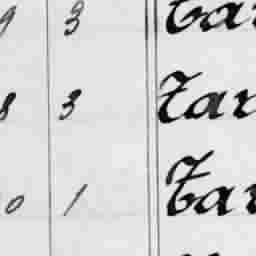 9 3 Tar
8 3 Tar
0 1 Tar